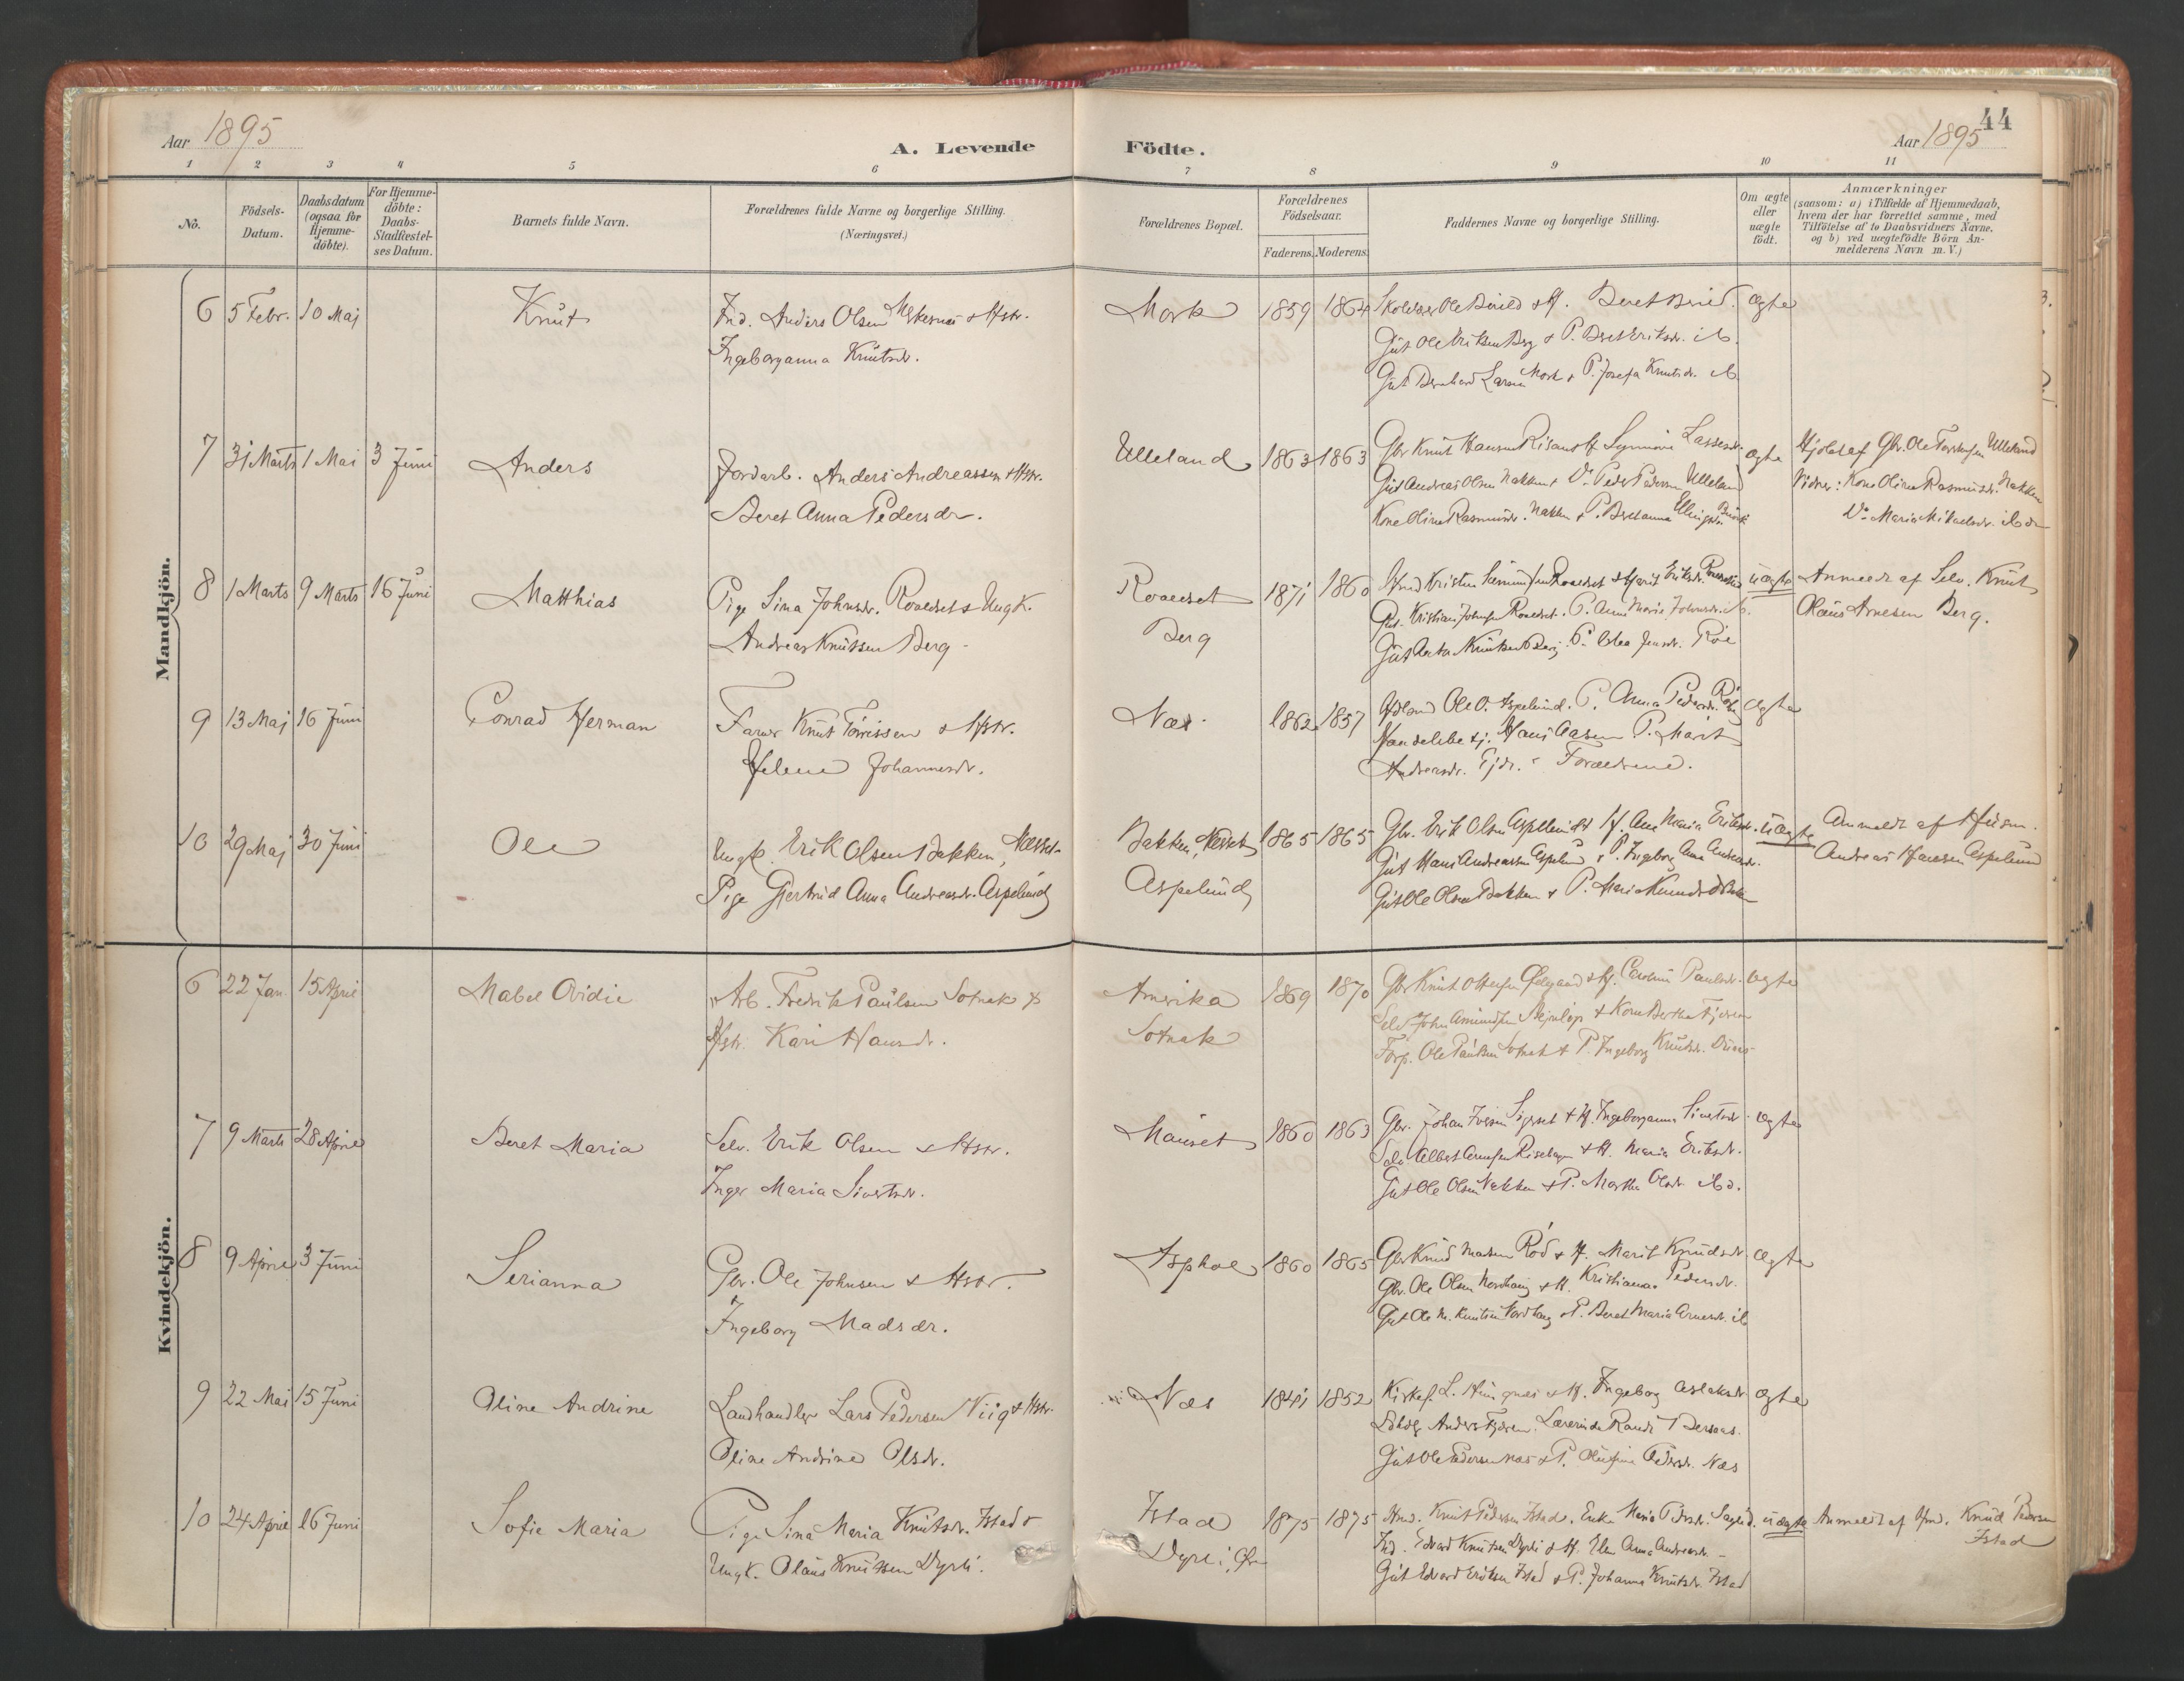 44
Aar 1895
A. Levende
Födte.
Aar 1895
1 2 3 4 5 6 7 8 9 10 11
No.
Födsels-
Datum.
Daabsdatum
(ogsaa for
Hjemme-
döbte).
For Hjemme-
döbte:
Daabs-
Stadfæstel-
ses Datum.
Barnets fulde Navn.
Forældrenes fulde Navne og borgerlige Stilling.
(Næringsvei.)
Forældrenes Bopæl.
Forældrenes
Födselsaar.
Faderens. Moderens.
Faddernes Navne og borgerlige Stilling.
Om ægte
eller
uægte
födt.
Anmærkninger
(saasom: a) i Tilfælde af Hjemmedaab,
hvem der har forrettet samme, med
Tilföielse af to Daabsvidners Navne,
og b) ved uægtefödte Börn An-
melderens Navn m. V.)
Mandkjön.
6 5 Febr. 10 Maj Knut
Ind. Anders Olsen Myknes & Hstr.
Ingeborganna Knutsdr.
Mork 1859 1864
Beret
Gut Ole Eriksen Berg & P. Beret Eriksdr. ib.
Gut Bernhard Larsen Mork & P. Josefa Knutsdr. ib
ægte
7 31 Marts 1 Mai 3 Juni Anders
Jordarb. Anders Andreassen & Hstr.
Beret Anna Pedersdr.
Ulleland 1863 1863
Gbr Knut Hansen Risan & H Synnøve Lassesdr.
Gut Andreas Olsen Nakken & Do Peder Pedersen Ulleland
Kone Oline Rasmusdr. Nakken & P. Beretanna Ellingsdr.
ægte
Hjdøbt af Gbr. Ole Ulleland
Vidner: Kone Oline Rasmusdr. Nakken
Do Maria Mikaelsdr. ibdm
8 1 Marts 9 Marts 16 Juni Matthias
Pige Sina Johnsdr. Roaldset & Ungk.
Andreas Knutssen Berg
Roaldset
Berg
1871 1860
Hmd Kristen Roaldset & Marit Eriksdr. Roaldset
Gut. Kristian Johnsen Roaldset. P. Anne Marie Johnsdr. ib.
Gut Knutsen Berg. P. Jensdr. Röe
uægte
Anmeldt af Selv. Knut
Olaus Arnesen Berg.
9 13 Maj 16 Juni Conrad Herman
Farver Knut Tørrissen & Hstr.
Helene Johannesdr.
Næs 1862 1857
Ole O. Aspelund. P. Anna Pedersdr. Röe
Handelsbetj. Hans Aasen P. Marit
Andreasdr. Tjdr. Forældrene.
ægte
10 29 Maj 30 Juni Ole
Ungk. Erik Olsen Bakken, Nesset
Pige Gjertrud Anna Andreasdr. Aspelund
Bakken, Nesset
Aspelund
1865 1865
Gbr. Erik Olsen Aspelund & H. Ane Maria Eriksdr.
Gut Hans Andreassen Aspelund & P. Ingeborg Anna Andreasdr.
Gut Ole Olsen Bakken & P. Marie Knudsdr
uægte
Anmeldt af Husm.
Andreas Hansen Aspelund
Kvindekjön.
6 22 Jan. 15 April Mabel Ovidie
Arb. Fredrik Paulsen Sotnak &
Hstr. Kari Hansdr.
Amerika
Sotnak
1869 1870
Gbr Knut & H. Caroline Paulsdr.
Selv John Amundsen & Kone Bertha
Forp. Ole Paulsen Sotnak & P. Ingeborg Knutsdr.
ægte
7 9 Marts 28 April Beret Maria
Selv. Erik Olsen & Hstr.
Inger Maria Sivertsdr.
Mauset 1860 1863
Gbr. Johan Iversen & H. Ingeborganna Sivertsdr.
Selv Albert Arnesen & H. Maria Eriksdr.
Gut Ole Olsen Nakken & P. Martha Olsdr. ibd.
ægte
8 9 April 3 Juni Serianna
Gbr. Ole Johnsen & Hstr.
Ingeborg Madsdr.
Asphol 1860 1865
Gbr Knud Madsen Röd & H. Marit Knudsdr.
Gbr. Ole Olsen Nordhaug & H. Kristianna Pedersdr.
Gut Ole M. Knutsen Nordhaug & P. Beret Maria Arnesdr. ib
ægte
9 22 Mai 15 Juni Oline Andrine
Landhandler Lars Pedersen Viig & Hstr.
Oline Andrine Olsdr.
Næs 1841 1852
& H. Ingeborg Aslaksdr.
Anders Lærerinde Randi
Gut Ole Pedersen Næs & P. Pedersdr. Næs
ægte
10 24 April 16 Juni Sofie Maria
Pige Sina Maria Knutsdr. Istad &
Ungk. Olaus Knutssen Dyrli.
Istad
Dyrli,
1875 1875
Hmd. Knut Pedersen Istad. Enke Maria Pedersdr.
Ind. Edvard Knutsen Dyrli & H. Elen Anna Andreasdr.
Gut Edvard Eriksen Istad & P. Johanna Knutsdr. Istad
uægte
Anmeldt af Hmd. Knud Pedersen
Istad